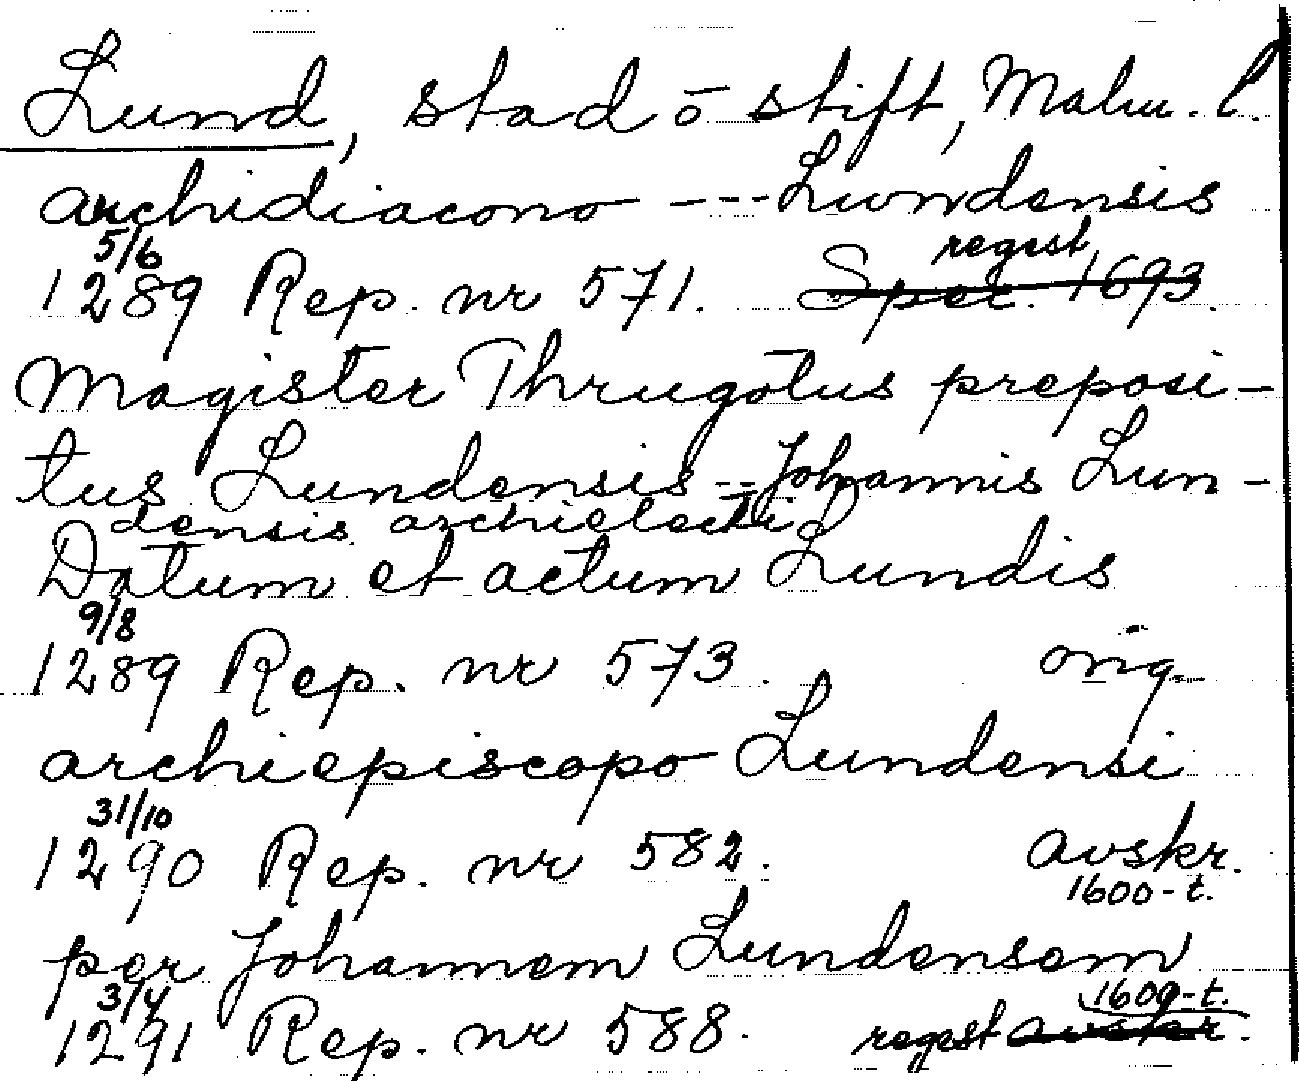 Lund, stad o stift, Malm. l.
archidiacono --- Lundensis
5/6
1289 Rep. nr 571. regest Sper. 1693.
Magister Thrugotus preposi-
tus Lundensis -- Johannis Lun-
densis archielecti
Datum et actum Lundis
9/8
1289 Rep. nr 573. orig.
archiepiscopo Lundensi
31/10
1290 Rep. nr 582. avskr.
1600-t.
per Johannem Lundensem
3/4 1600-t.
1291 Rep. nr 588. regest avskr.